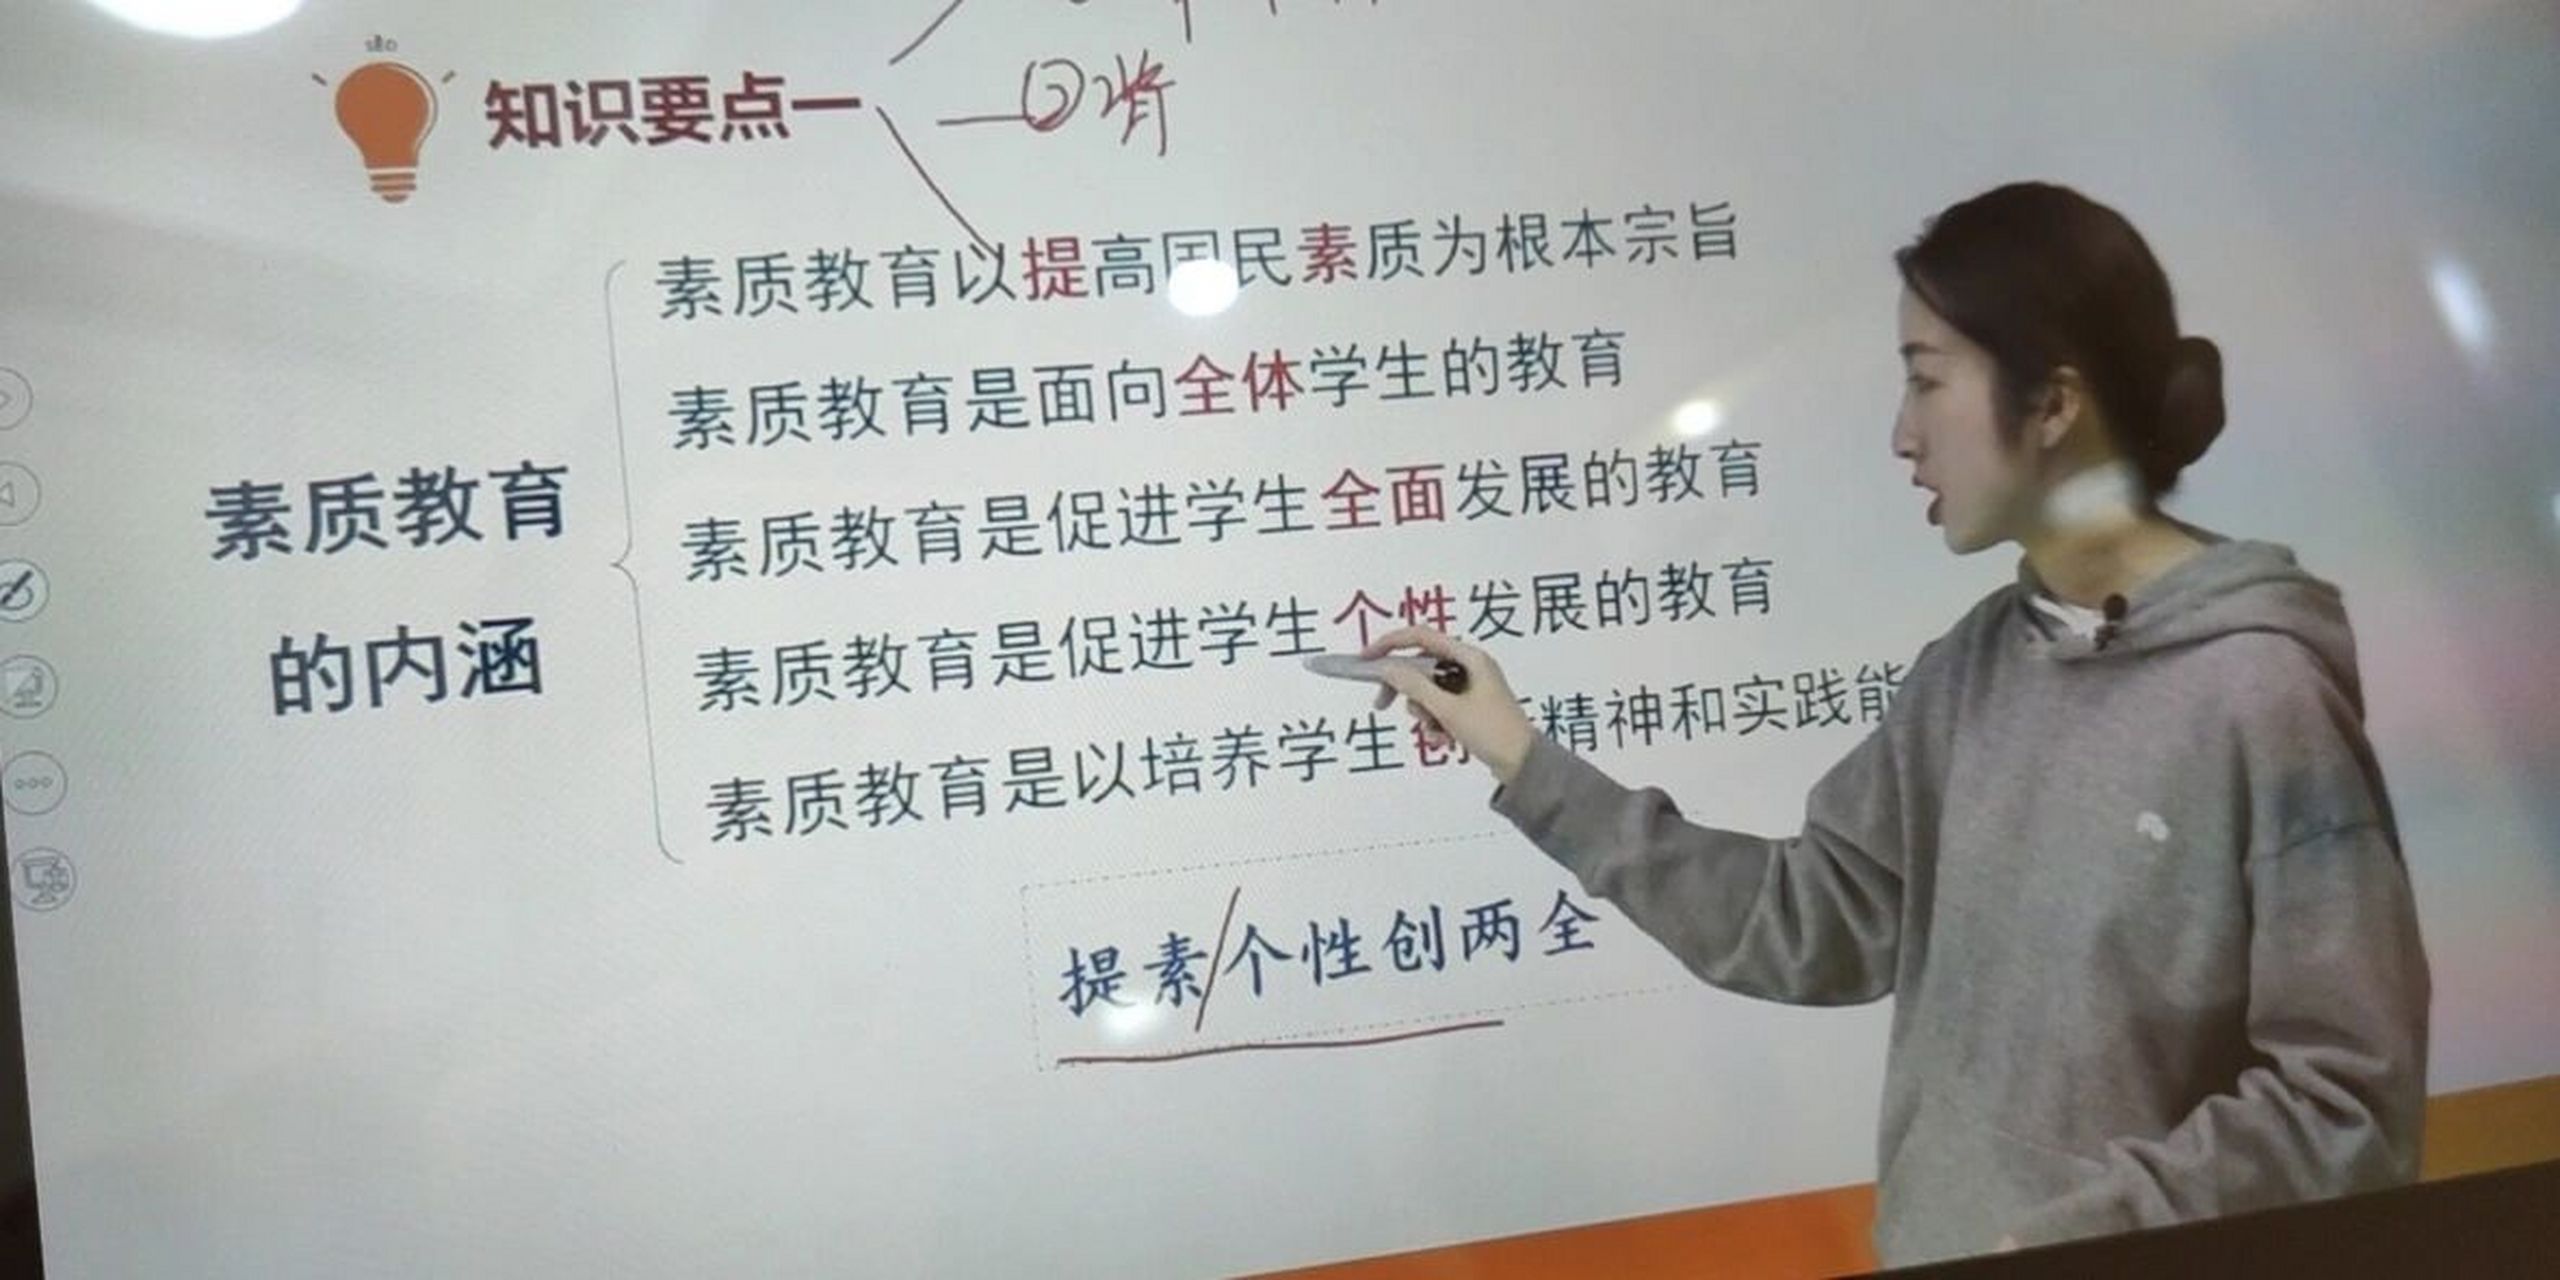 知识要点一
②背
素质教育以提高国民素质为根本宗旨
素质教育是面向全体学生的教育
素质教育是促进学生全面发展的教育
素质教育
素质教育是促进学生个性发展的教育
的内涵
素质教育是以培养学生创 精神和实践能
提素/个性创两全